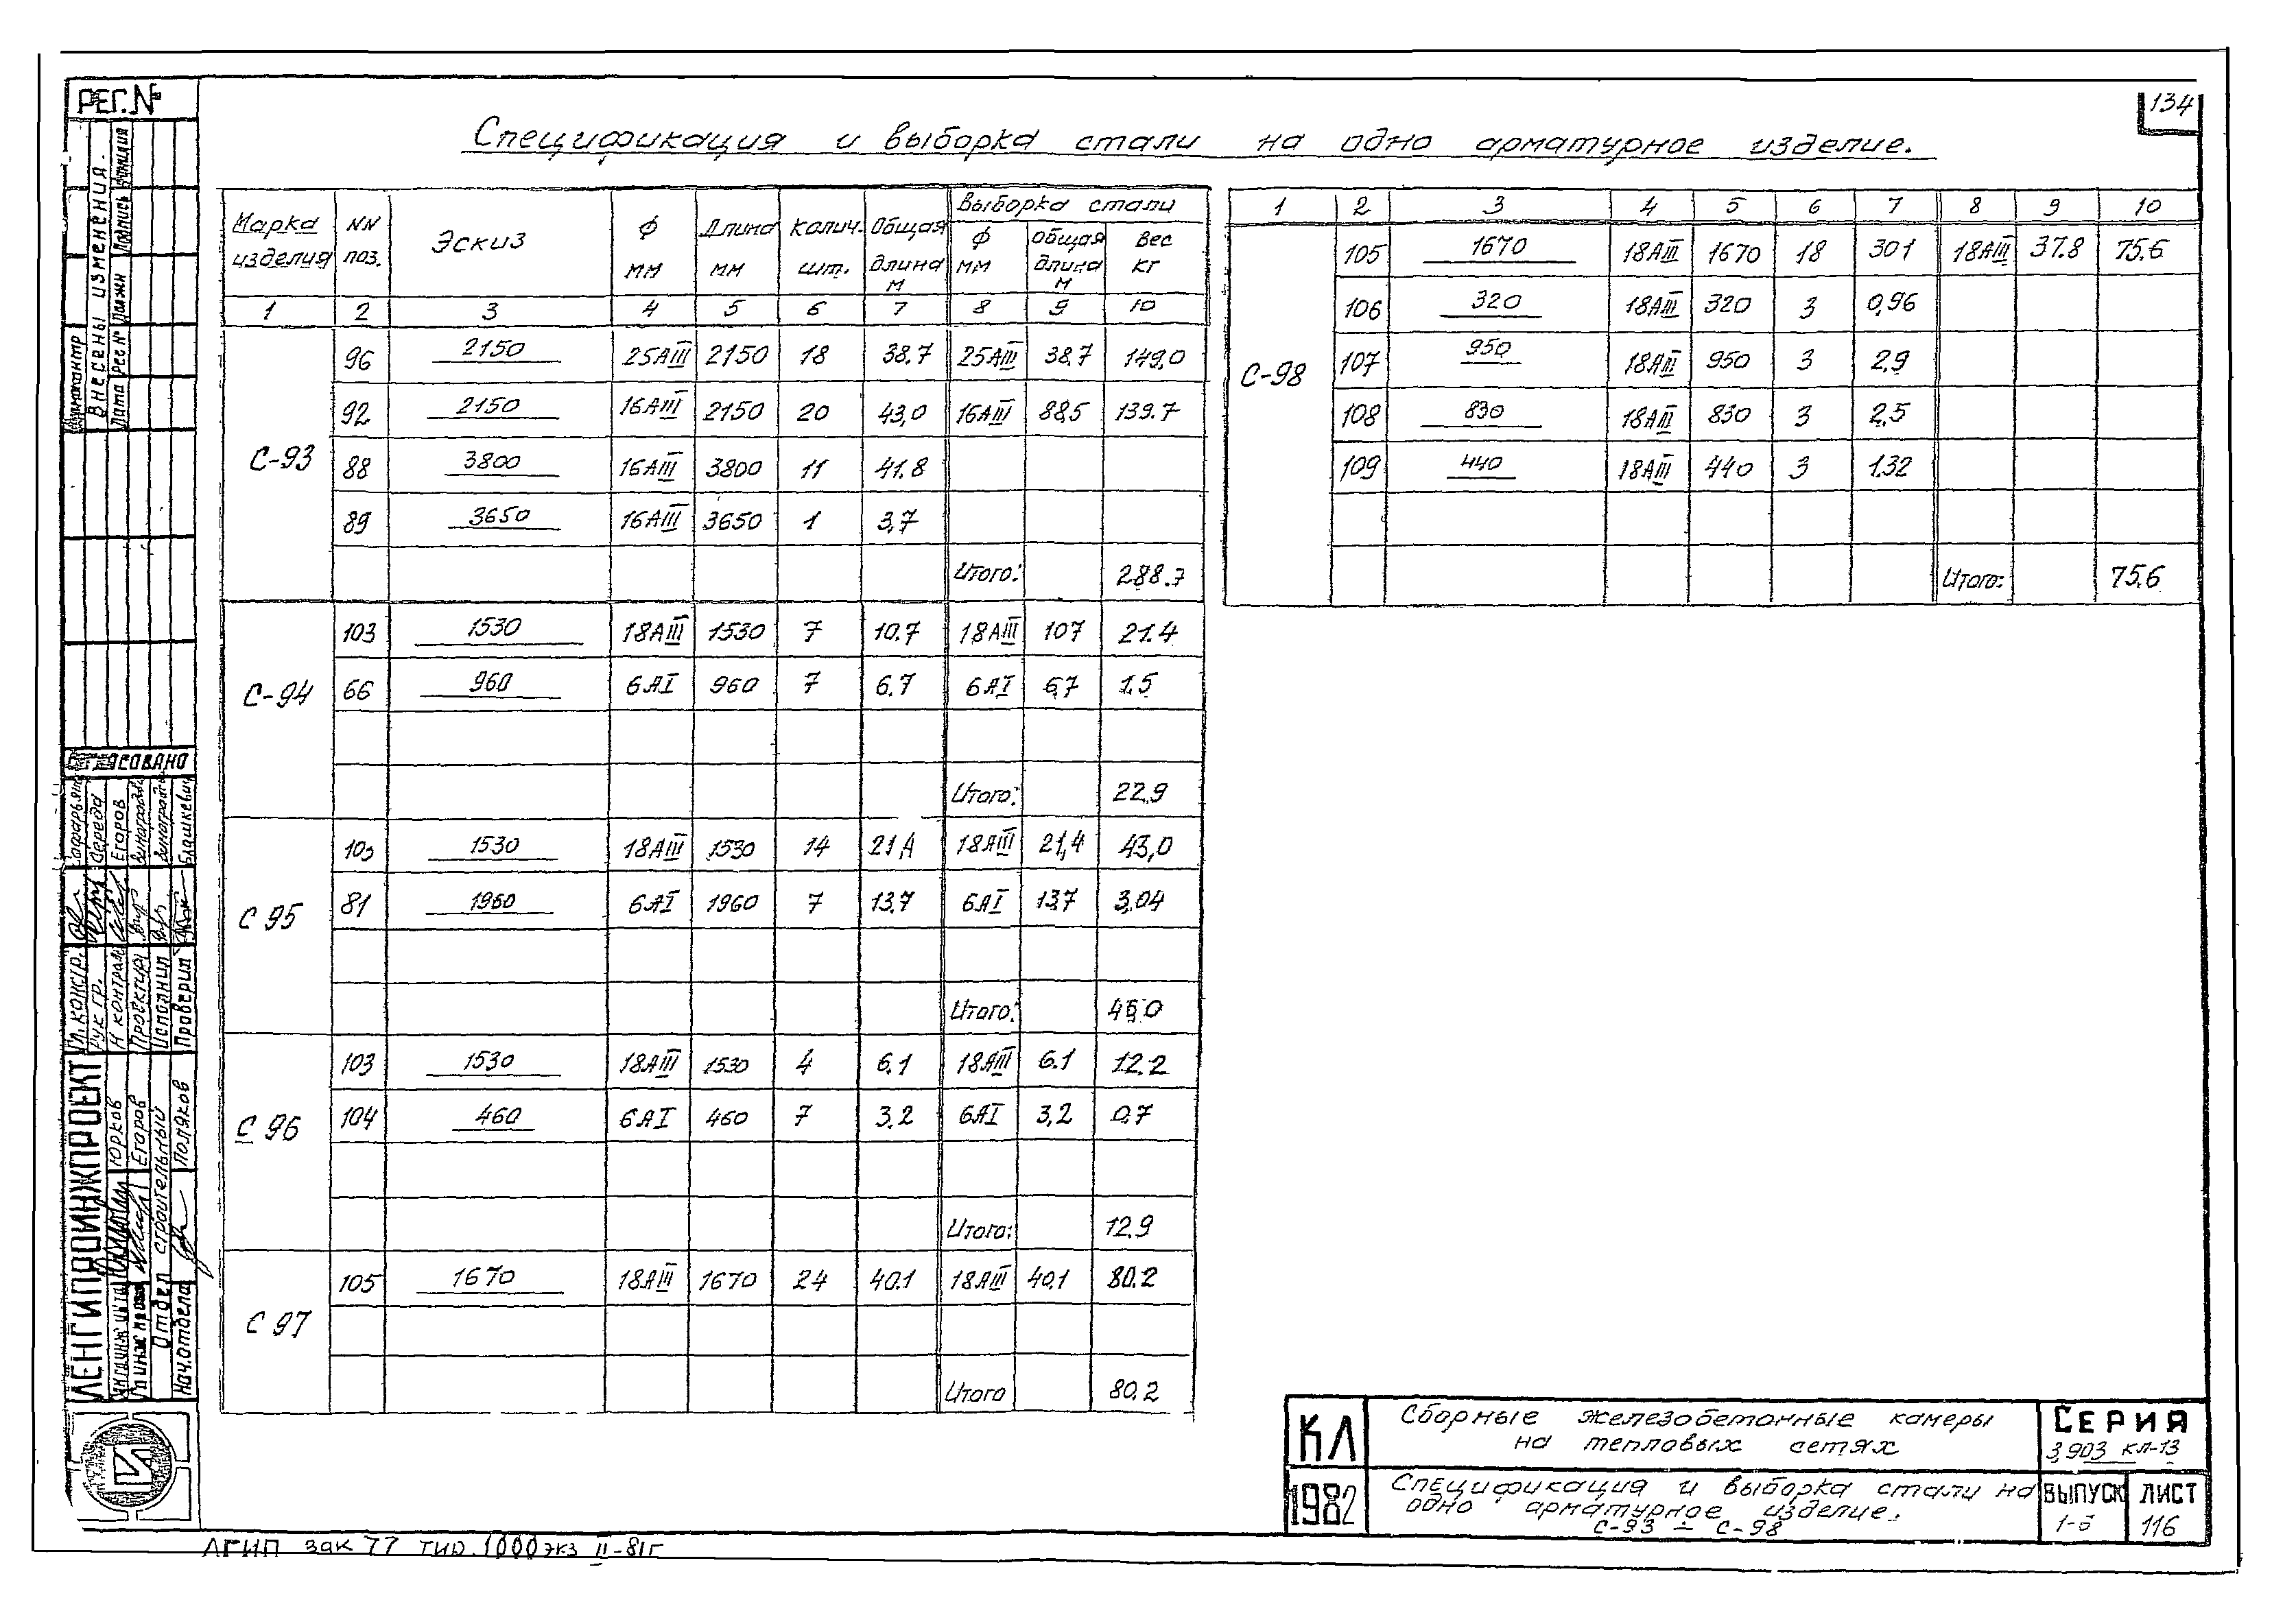 134
РЕГ.№
Спецификация и выборка стали на одно арматурное изделие.
Марка изделия | NN поз. | Эскиз | Ф мм | Длина мм | Колич. шт. | Общая длина м | Выборка стали
Ф мм | Общая длина м | Вес кг
1 2 3 4 5 6 7 8 9 10
С-93
96 2150 25АIII 2150 18 38.7 25АIII 38.7 149,0
92 2150 16АIII 2150 20 43,0 16АIII 88,5 139.7
88 3800 16АIII 3800 11 41.8
89 3650 16АIII 3650 1 3,7
Итого: 288.7
С-94
103 1530 18АIII 1530 7 10.7 18АIII 107 21.4
66 960 6АI 960 7 6.7 6АI 6,7 1.5
Итого: 22.9
С 95
103 1530 18АIII 1530 14 21,4 18АIII 21,4 43,0
81 1960 6АI 1960 7 13.7 6АI 13,7 3,04
Итого: 46,0
С 96
103 1530 18АIII 1530 4 6.1 18АIII 6.1 12.2
104 460 6АI 460 7 3.2 6АI 3,2 0.7
Итого: 12.9
С 97
105 1670 18АIII 1670 24 40.1 18АIII 40,1 80.2
Итого 80.2
1 2 3 4 5 6 7 8 9 10
С-98
105 1670 18АIII 1670 18 301 18АIII 37.8 75.6
106 320 18АIII 320 3 0,96
107 950 18АIII 950 3 2.9
108 830 18АIII 830 3 2.5
109 440 18АIII 440 3 1.32
Итого: 75.6
Внесены изменения.
Дата Рег№ Должн Подпись Фамилия
Согласовано
Гл. констр.
Рук гр. Середа
Н контроль Егоров
Проектир
Исполнил
Проверил Блашкевич
ЛЕНГИПРОИНЖПРОЕКТ
Юрков
Егоров
Отдел строительный
Нач.отдела Поляков
КЛ
1982
Сборные железобетонные камеры
на тепловых сетях
СЕРИЯ
3,903 КЛ-13
Спецификация и выборка стали на
одно арматурное изделие.
С-93 ÷ С-98
ВЫПУСК
1-5
ЛИСТ
116
ЛГИП зак 77 тир. 1000 экз II-81г